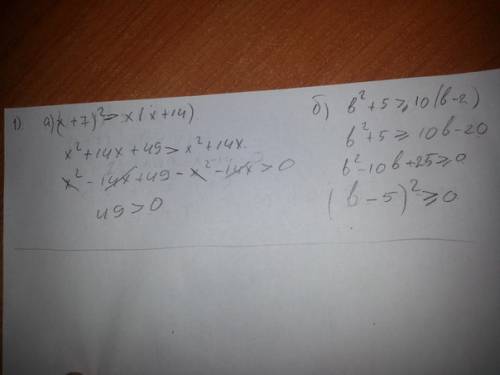 1) а) (x+7)² > x(x+14)
x²+14x+49 > x²+14x.
x²-14x+49-x²-14x>0
49>0
б) b²+5 ⩾ 10(b-2)
b²+5 ⩾ 10b-20
b²-10b+25⩾0
(b-5)²⩾0